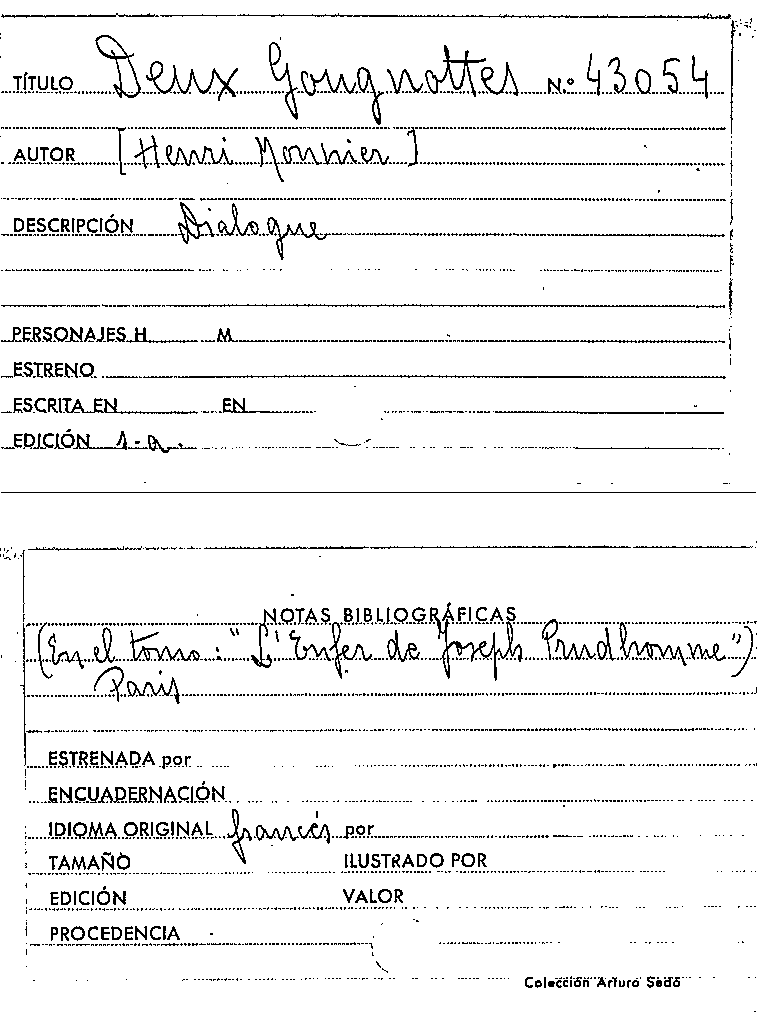 TÍTULO Deux Gougnottes N.º 43054
AUTOR [Henri Monnier]
DESCRIPCIÓN Dialogue
PERSONAJES H M
ESTRENO
ESCRITA EN EN
EDICIÓN s.a.
NOTAS BIBLIOGRÁFICAS
(En el tomo: "L'Enfer de Joseph Prudhomme")
Paris
ESTRENADA por
ENCUADERNACIÓN
IDIOMA ORIGINAL francés por
TAMAÑO ILUSTRADO POR
EDICIÓN VALOR
PROCEDENCIA
Colección Arturo Sedó